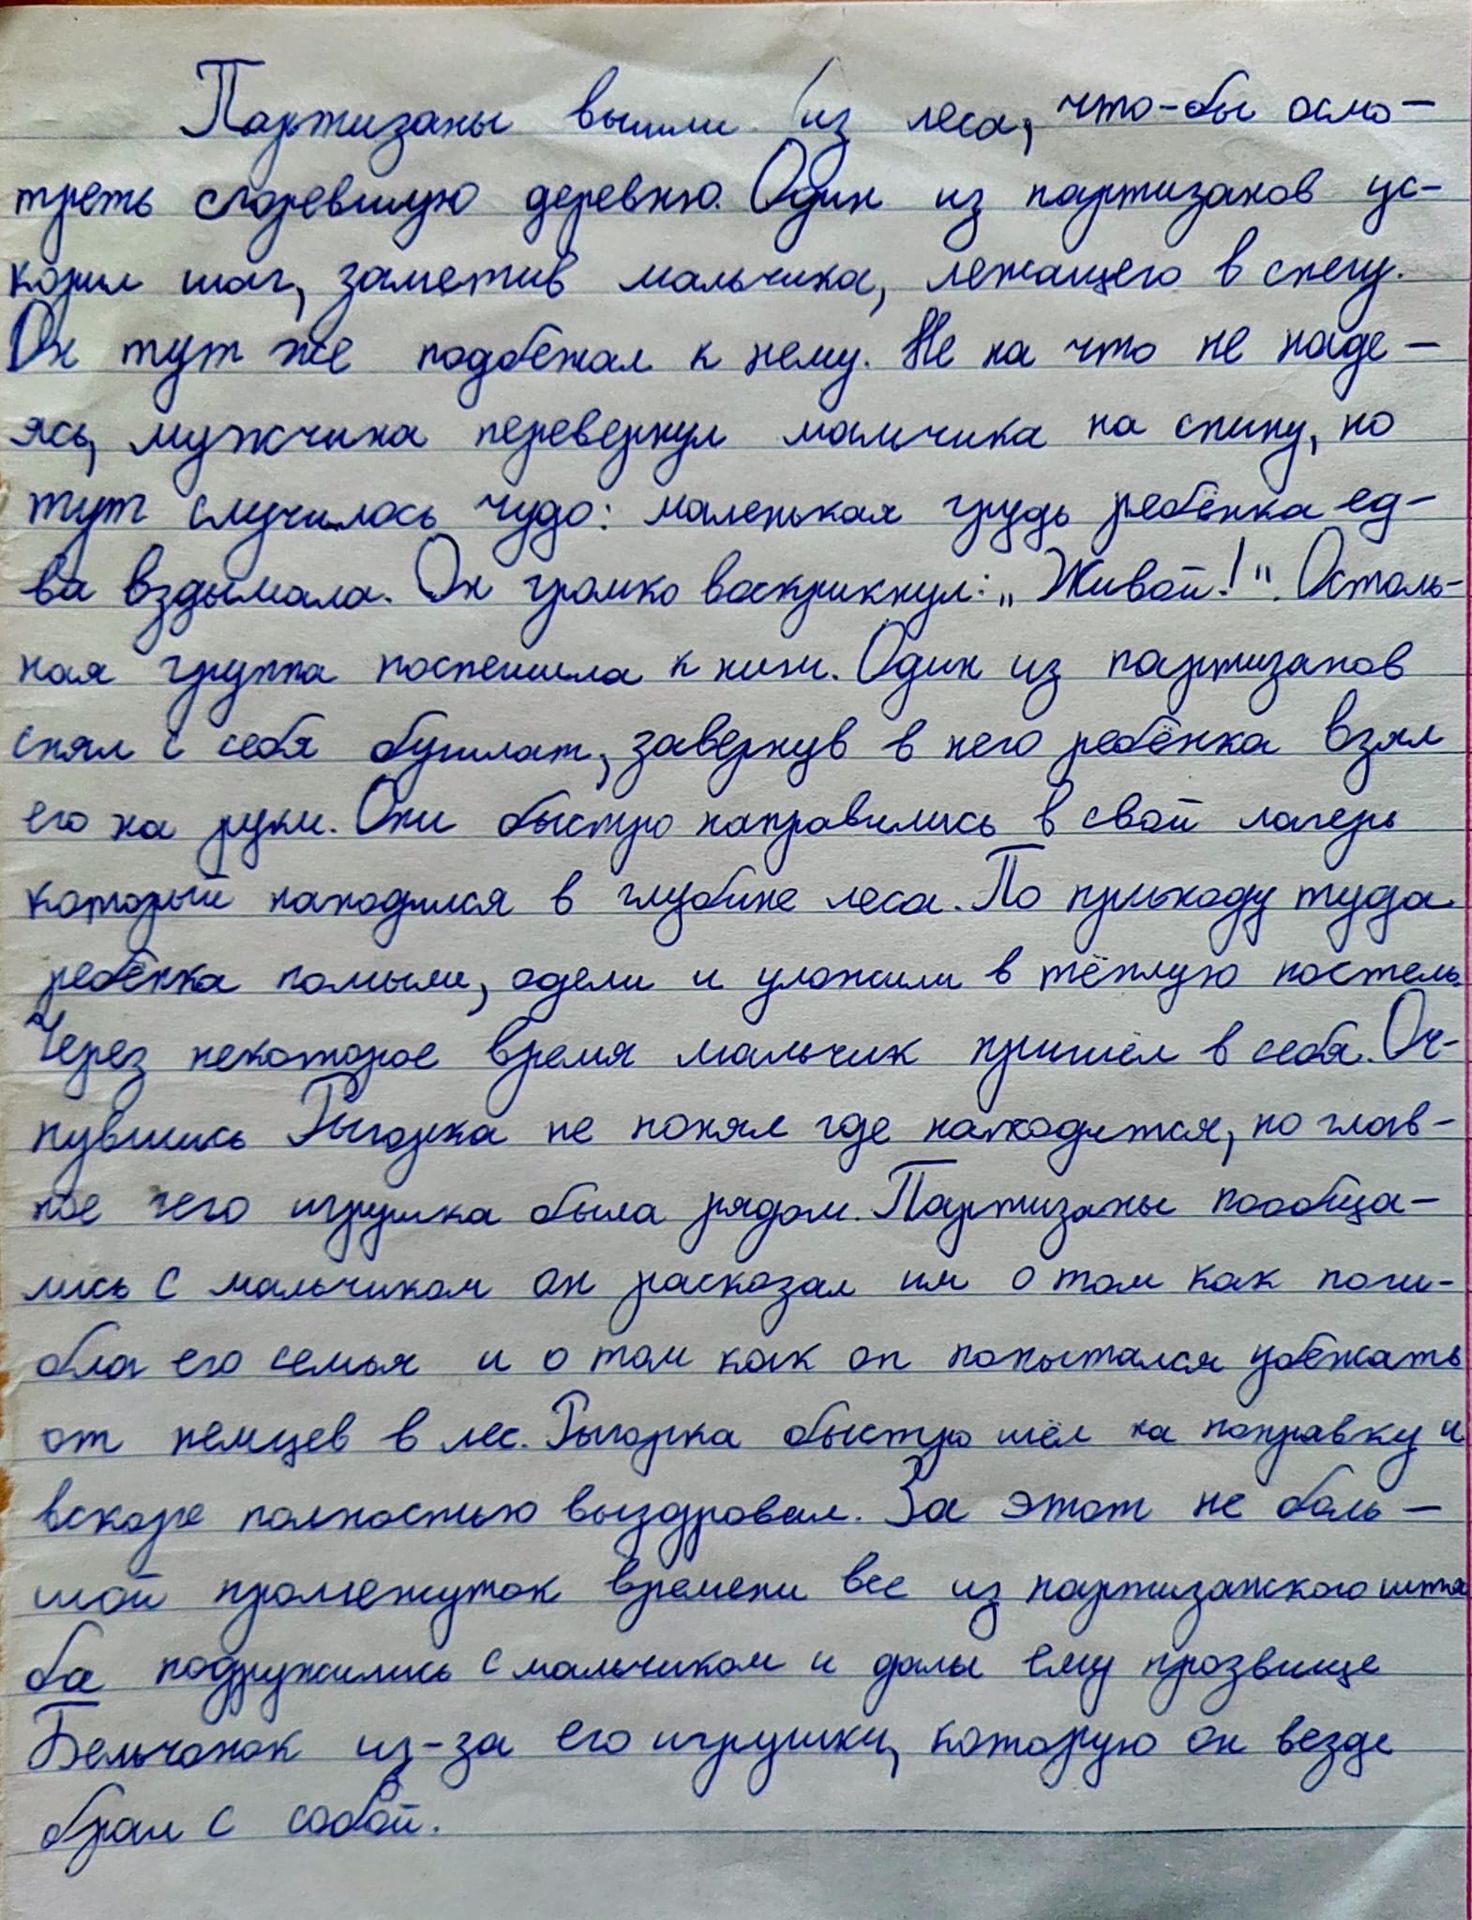 Партизаны вышли из леса, что-бы осмо-
треть сгоревшую деревню. Один из партизанов ус-
корил шаг, заметив мальчика, лежащего в снегу.
Он тут же подбежал к нему. Не на что не наде-
ясь, мужчина перевернул мальчика на спину, но
тут случилось чудо: маленькая грудь ребёнка ед-
ва вздымала. Он громко воскрикнул: „Живой!". Осталь-
ная группа поспешила к ним. Один из партизанов
снял с себя бушлат, завернув в него ребёнка взял
его на руки. Они быстро направились в свой лагерь
который находился в глубине леса. По приходу туда
ребёнка помыли, одели и уложили в тёплую постель.
Через некоторое время мальчик пришёл в себя. Оч-
нувшись Рыгорка не понял где находится, но глав-
ное его игрушка была рядом. Партизаны пообща-
лись с мальчиком он расказал им о том как поги-
бла его семья и о том как он попытался убежать
от немцев в лес. Рыгорка быстро шёл на поправку и
вскоре полностью выздровел. За этот не боль-
шой промежуток времени все из партизанского шта
ба подружились с мальчиком и далы ему прозвище
Бельчонок из-за его игрушки, которую он везде
брал с собой.